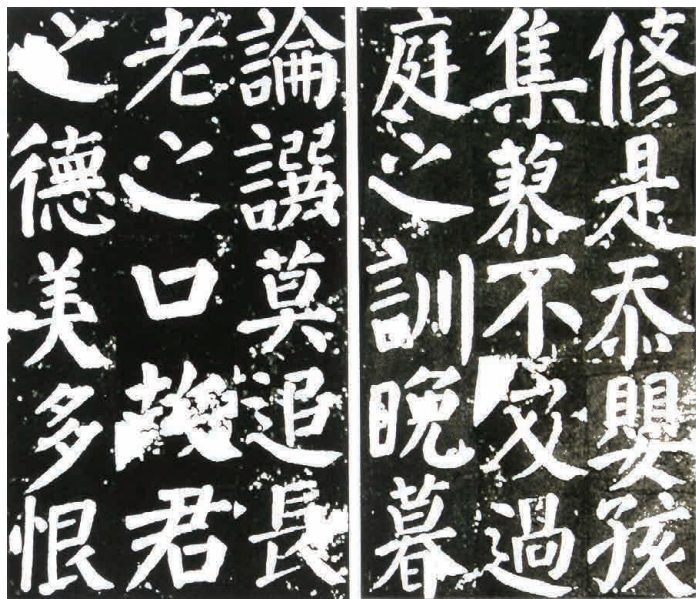 修是忝嬰孩
集蓼不及過
庭之訓晚暮
論譔莫追長
老之口君
之德美多恨